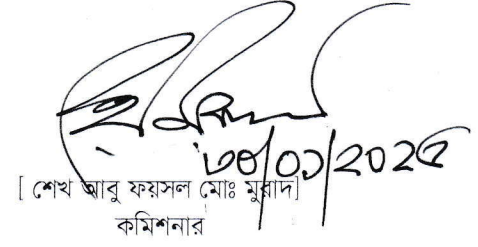 ৩০/০১/২০২৫
[ শেখ আবু ফয়সল মোঃ মুরাদ]
কমিশনার